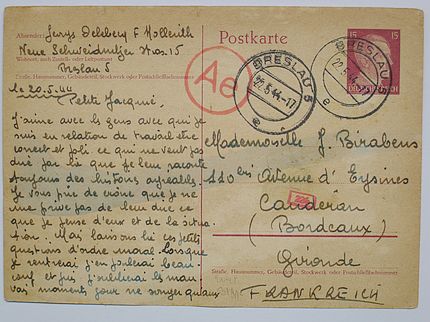 Absender:
Neue Schweidnitzer Str. 15
Breslau 5
Straße, Hausnummer, Gebäudeteil, Stockwerk oder Postschließfachnummer
Postkarte
15 15
DEUTSCHES REICH
BRESLAU 5
22.5.44.-17
e
BRESLAU 5
22.5.44
e
Ae
le 20.5.44
Petite Jacqué.
J'aime avec les gens avec qui je
suis en relation de travail être
correct et poli ce qui ne veut pas
dire par là que je leur raconte
toujours des histoires agréables.
Je vous prie de croire que je ne
me prive pas de leur dire ce
que je pense d'eux et de la situa
tion. Mais laissons là ces petits
questions d'ordre moral lorsque
je rentrerai j'en oublierai beau
coup et puis j'oublierai les mau
vais moments pour ne songer qu'aux
Mademoiselle J. Birabens
120 bis Avenue d'Eysines
Caudéran
(Bordeaux)
Gironde
Straße, Hausnummer, Gebäudeteil, Stockwerk oder Postschließfachnummer
FRANKREICH